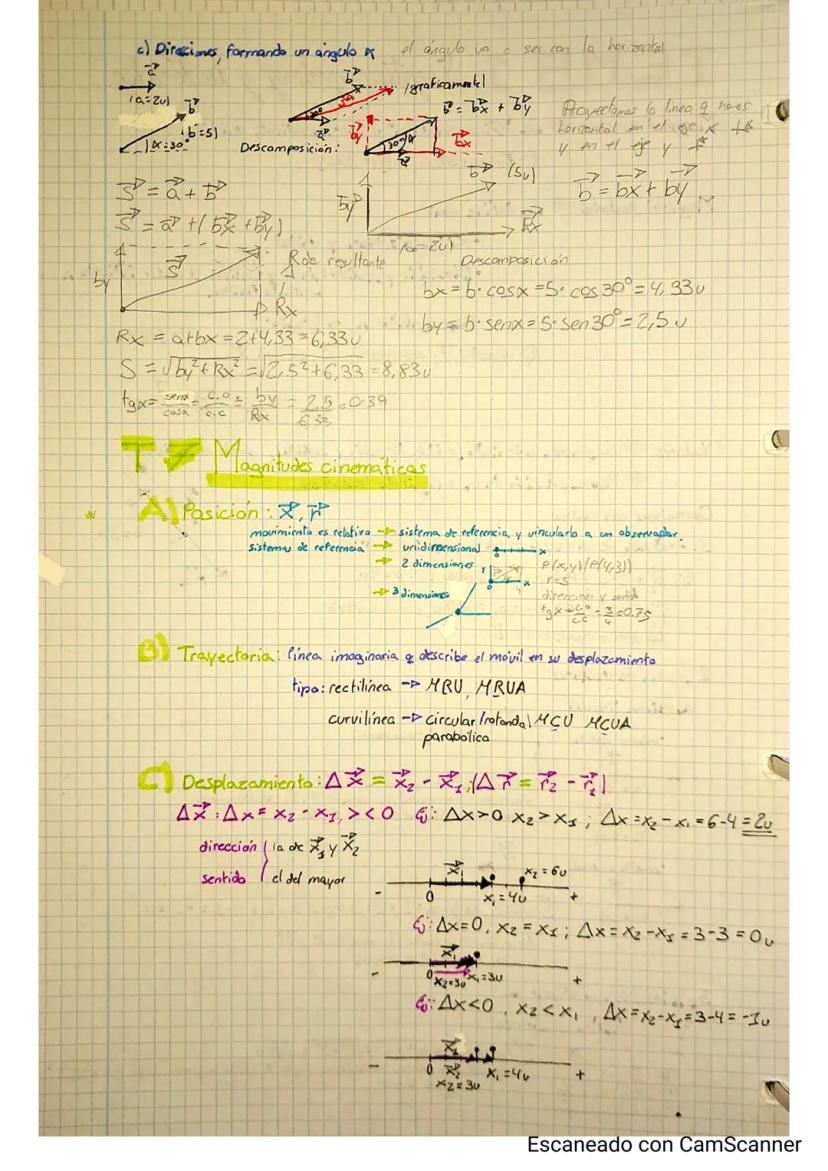 c) Direciones, formando un ángulo α el ángulo va a ser con la horizontal
a
(a=2u)
b
b=5)
α=30°
b
/graficamente/
30°
a
Descomposición:
by
30° α
a
bx
b = bx + by
Proyectamos la linea q no es
horizontal en el eje x
y en el eje y
S = a + b
S = a + (bx + by)
by
b (5u)
Rx
(a=2u)
b = bx + by
by
S
R de resultante
Rx
Descomposición
bx = b · cosα = 5 · cos 30° = 4,33u
by = b · senα = 5 · sen 30° = 2,5u
Rx = a+bx = 2+4,33 = 6,33u
S = √by²+Rx² = √2,5²+6,33 = 8,83u
tgα = senα/cosα = c.o/c.c = by/Rx = 2,5/6,33 = 0,39
T7 Magnitudes cinemáticas
A) Posición: x, r
movimiento es relativo → sistema de referencia y vincularlo a un observador.
sistemas de referencia → unidimensional 0 x
→ 2 dimensiones y 0 x
P(x,y)(P(4,3))
r=5
dirección y sentido
tgα = c.o/c.c = 3/4 = 0.75
→ 3 dimensiones
B) Trayectoria: línea imaginaria q describe el móvil en su desplazamiento
tipo: rectilínea → MRU, MRUA
curvilínea → circular /rotonda\ MCU MCUA
parabólica
C) Desplazamiento: Δx = x₂ - x₁; (Δr = r₂ - r₁)
Δx: Δx = x₂ - x₁, > < 0 Ej: Δx>0 x₂>x₁; Δx = x₂ - x₁ = 6-4 = 2u
dirección la de x₁ y x₂
sentido el del mayor
x₁ x₂=6u
- 0 x₁=4u +
Ej: Δx=0, x₂=x₁; Δx=x₂-x₁=3-3=0u
x₁
- 0 x₂=3u x₁=3u +
Ej: Δx<0, x₂<x₁, Δx=x₂-x₁=3-4=-1u
x₁
- 0 x₂ x₁=4u +
x₂=3u
Escaneado con CamScanner